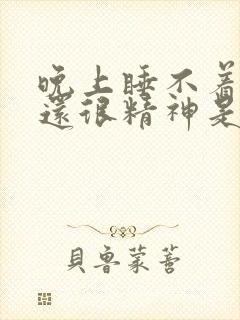 晚上睡不着
還很精神是
貝魯蒙蒈